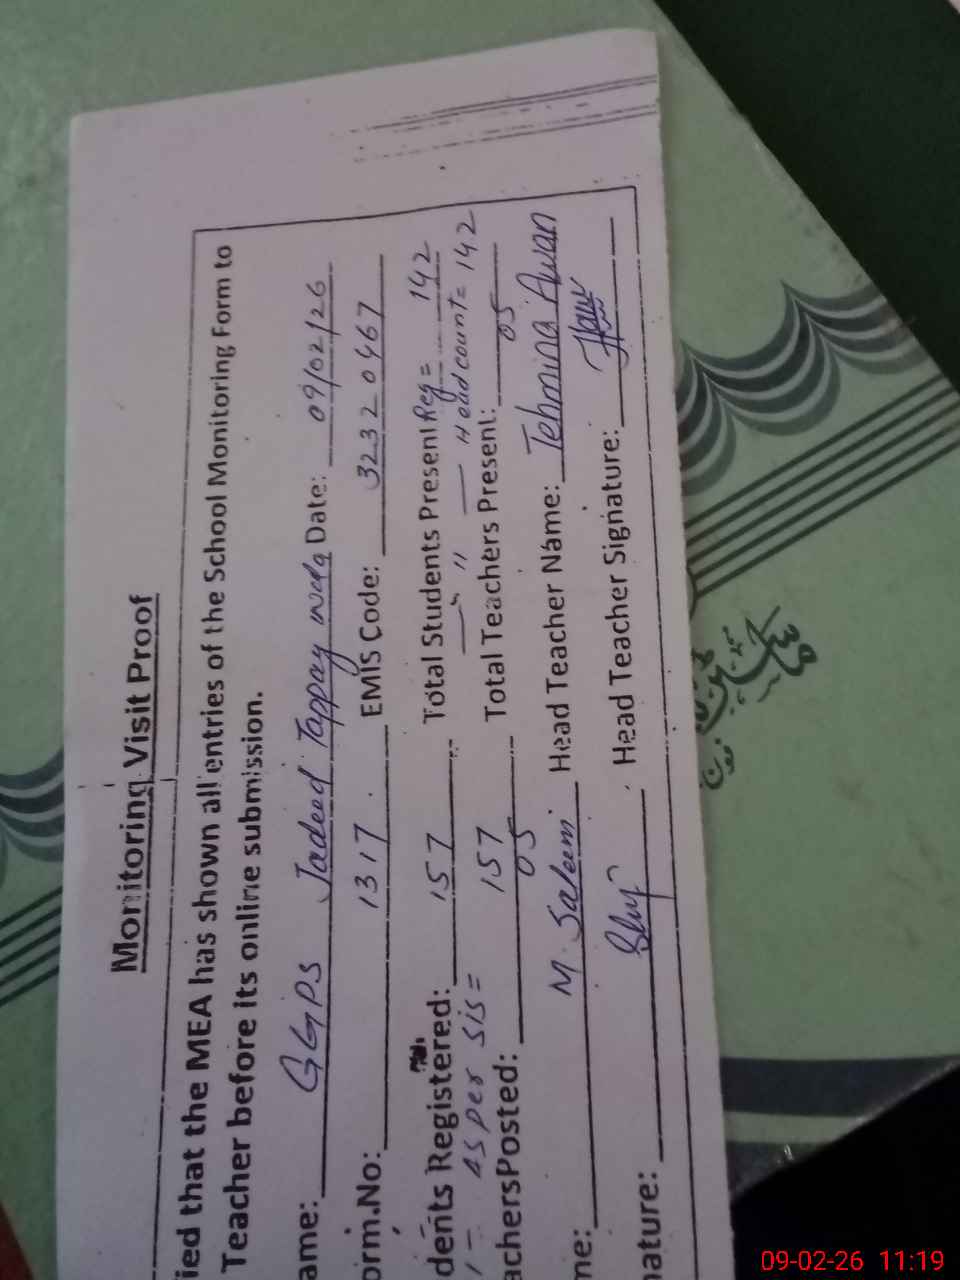 Monitoring Visit Proof
ied that the MEA has shown all entries of the School Monitoring Form to
Teacher before its online submission.
ame: GGPS Jadeed Tappay wala Date: 09/02/26
orm.No: 1317 EMIS Code: 3232 0467
dents Registered: 157 Total Students Present Reg = 142
as per SIS = 157 — " — Head count = 142
achersPosted: 05 Total Teachers Present: 05
me: M. Saleem Head Teacher Name: Tehmina Awan
nature: Head Teacher Signature:
09-02-26 11:19